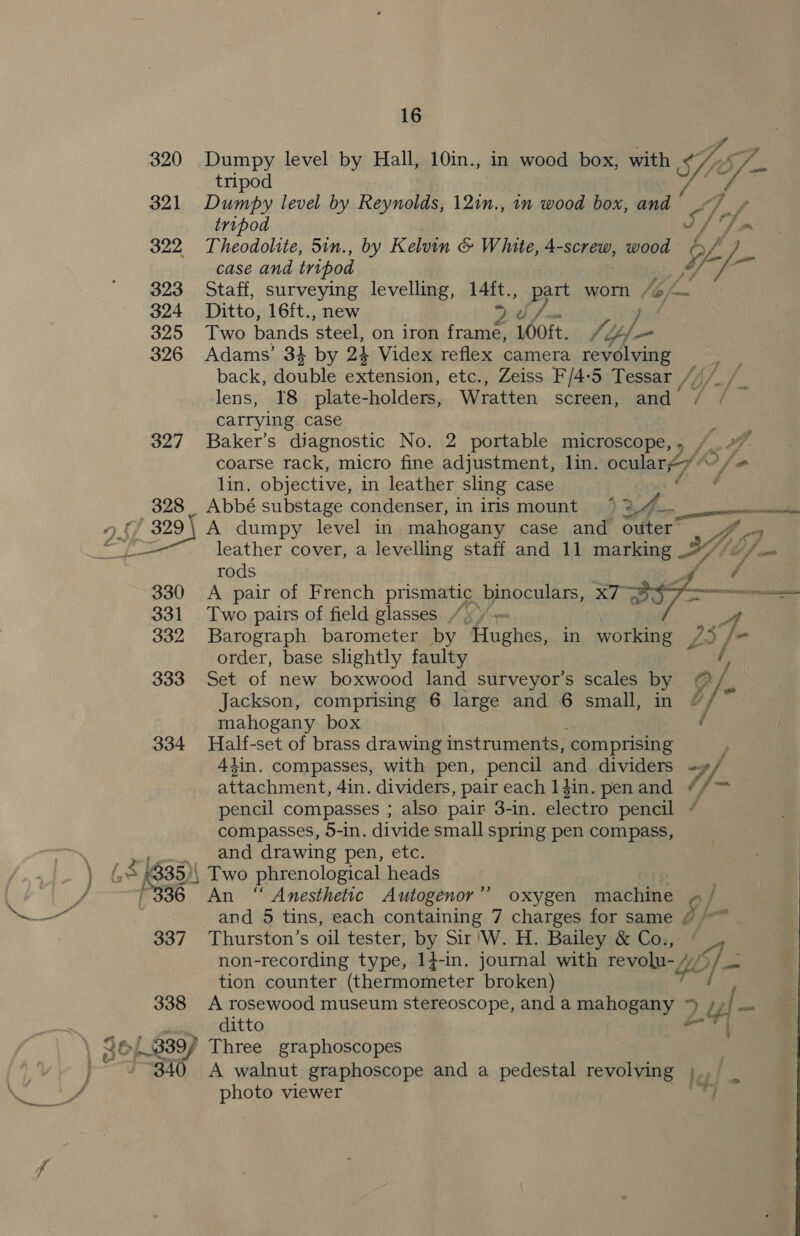 16
320 Dumpy level by Hall, 10in., in wood box, with
tripod
321 Dumpy level by Reynolds, 12in., in wood box, and
tripod
322 Theodolite, 5in., by Kelvin & White, 4-screw, wood
case and tripod
323 Staff, surveying levelling, 14ft., part worn
324 Ditto, 16ft., new
325 Two bands steel, on iron frame, 100ft.
326 Adams' 3¼ by 2¼ Videx reflex camera revolving
back, double extension, etc., Zeiss F/4·5 Tessar
lens, 18 plate-holders, Wratten screen, and
carrying case
327 Baker's diagnostic No. 2 portable microscope,
coarse rack, micro fine adjustment, 1in. ocular,
1in. objective, in leather sling case
328 Abbé substage condenser, in iris mount
329 A dumpy level in mahogany case and outer
leather cover, a levelling staff and 11 marking
rods
330 A pair of French prismatic binoculars, x7
331 Two pairs of field glasses
332 Barograph barometer by Hughes, in working
order, base slightly faulty
333 Set of new boxwood land surveyor's scales by
Jackson, comprising 6 large and 6 small, in
mahogany box
334 Half-set of brass drawing instruments, comprising
4½in. compasses, with pen, pencil and dividers
attachment, 4in. dividers, pair each 1½in. pen and
pencil compasses ; also pair 3-in. electro pencil
compasses, 5-in. divide small spring pen compass,
and drawing pen, etc.
335 Two phrenological heads
336 An “ Anesthetic Autogenor ” oxygen machine
and 5 tins, each containing 7 charges for same
337 Thurston's oil tester, by Sir W. H. Bailey & Co.,
non-recording type, 1¼-in. journal with revolu-
tion counter (thermometer broken)
338 A rosewood museum stereoscope, and a mahogany
ditto
339 Three graphoscopes
340 A walnut graphoscope and a pedestal revolving
photo viewer